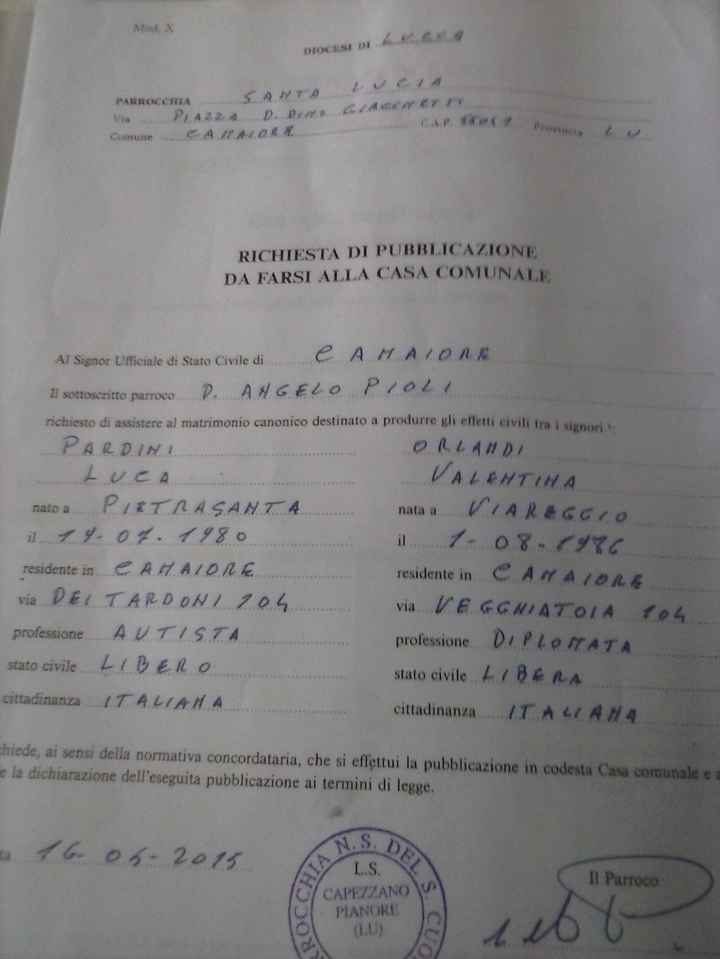 Mod. X
DIOCESI DI LUCCA
PARROCCHIA SANTA LUCIA
Via PIAZZA D. DINO GIACHETTI
Comune CAMAIORE C.A.P. Provincia LU
RICHIESTA DI PUBBLICAZIONE
DA FARSI ALLA CASA COMUNALE
Al Signor Ufficiale di Stato Civile di CAMAIORE
Il sottoscritto parroco D. ANGELO PIOLI
richiesto di assistere al matrimonio canonico destinato a produrre gli effetti civili tra i signori
PARDINI ORLANDI
LUCA VALENTINA
nato a PIETRASANTA nata a VIAREGGIO
il 1980 il 1-08-1986
residente in CAMAIORE residente in CAMAIORE
via DEI TARDONI 104 via VEGGHIATOIA 104
professione AUTISTA professione DIPLOMATA
stato civile LIBERO stato civile LIBERA
cittadinanza ITALIANA cittadinanza ITALIANA
chiede, ai sensi della normativa concordataria, che si effettui la pubblicazione in codesta Casa comunale e
e la dichiarazione dell'eseguita pubblicazione ai termini di legge.
ta 16-04-2015
RROCCHIA N.S. DEL S. CUO
L.S.
CAPEZZANO
PIANORE
(LU)
Il Parroco